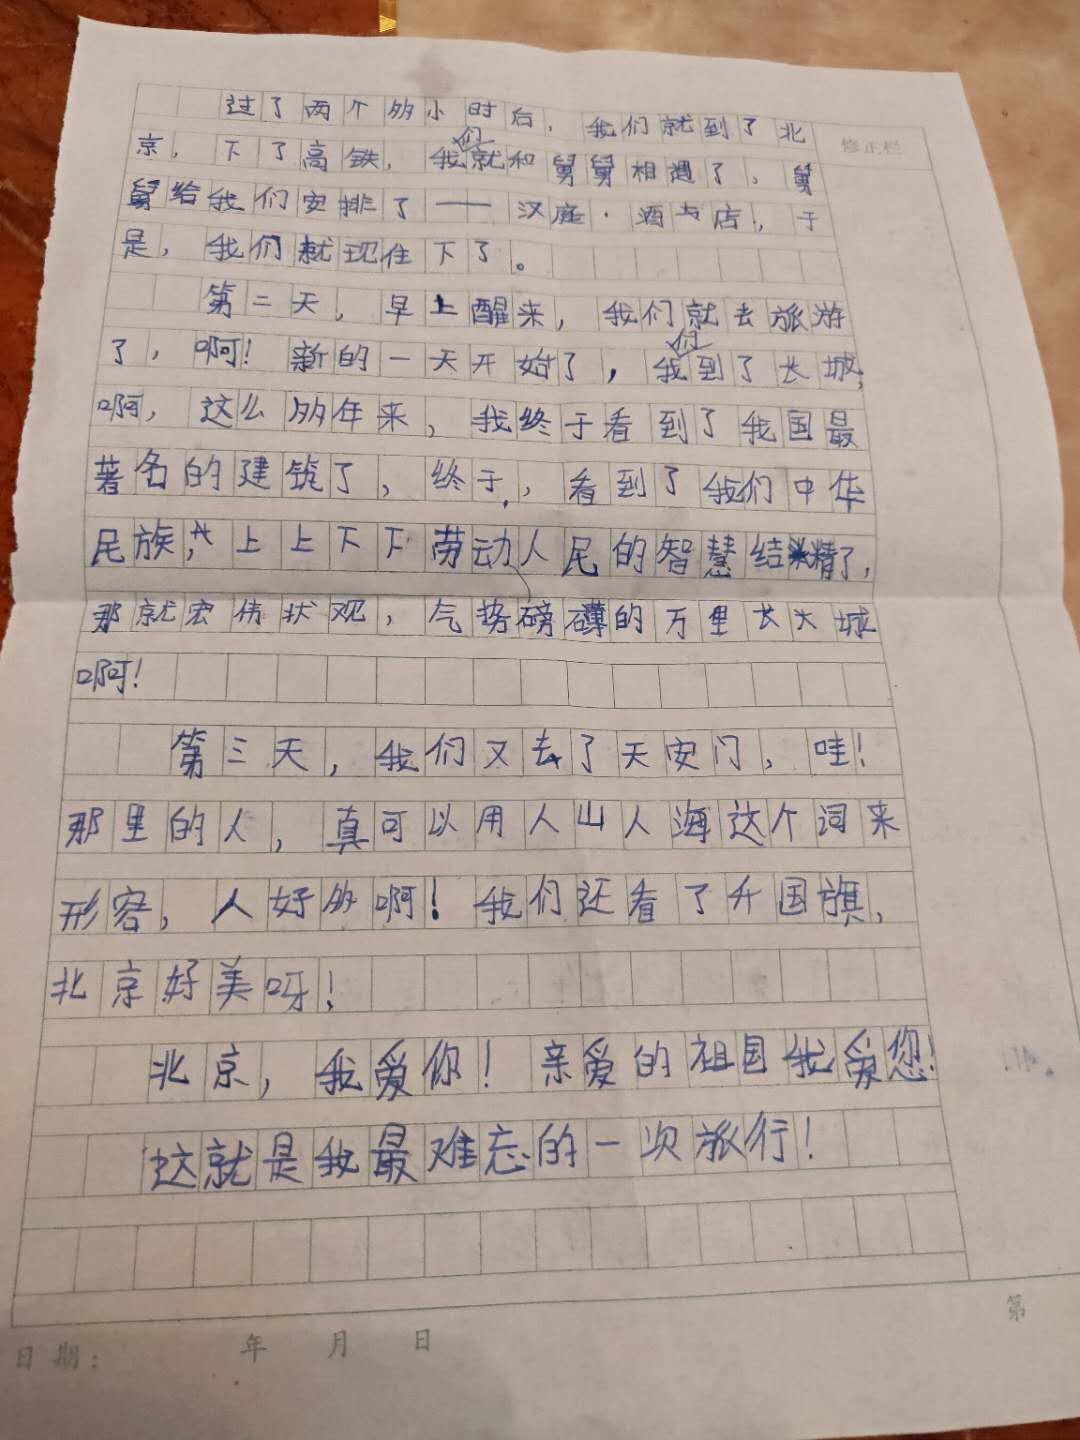 过了两个多小时后，我们就到了北
修正栏
京，下了高铁，我们就和舅舅相遇了，舅
舅给我们安排了——汉庭·酒店，于
是，我们就现住下了。
第二天，早上醒来，我们就去旅游
了，啊！新的一天开始了，我们到了长城，
啊，这么多年来，我终于看到了我国最
著名的建筑了，终于，看到了我们中华
民族，上上下下劳动人民的智慧结精了，
那就宏伟状观，气势磅礴的万里长长城
啊！
第三天，我们又去了天安门，哇！
那里的人，真可以用人山人海这个词来
形容，人好多啊！我们还看了升国旗，
北京好美呀！
北京，我爱你！亲爱的祖国我爱您！
这就是我最难忘的一次旅行！
第
日期： 年 月 日